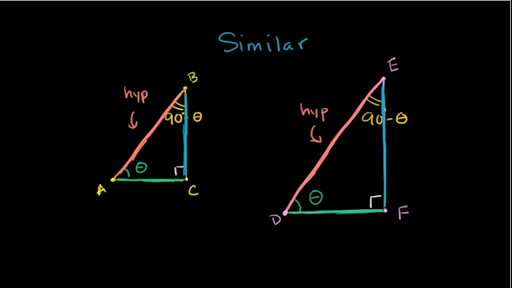 Similar
B
hyp
90 - θ
θ
A
C
E
hyp
90 - θ
θ
D
F